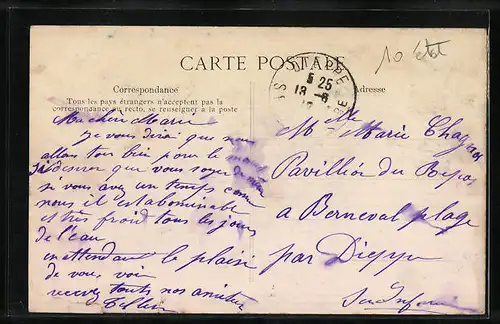 10 
CARTE POSTALE
Correspondance
Adresse
Tous les pays étrangers n'acceptent pas la
correspondance au recto, se renseigner à la poste
DIEPPE
5 25
18 - 8
Ma chère Marie
je vous dirai que nous
allons tous bien pour le moment
je désirer que vous soyez de même
si vous avez un temps comme
nous il est abominable
et très froid tous les jours
de l'eau
en attendant le plaisir
de vous voir
recevez toute nos amitiés
Melle Marie
Pavillon du Repos
a Berneval plage
par Dieppe
Seine Inférieure